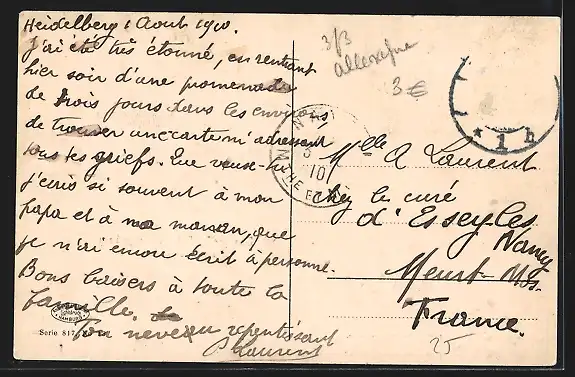 Heidelberg 1 Aout 1910.
J'ai été très étonné, en rentrant
hier soir d'une promenade
de trois jours dans les environs
de trouver une carte m'adressant
tous tes griefs. Que veux-tu
j'écris si souvent à mon
papa et à ma maman, que
je n'ai encore écrit à personne.
Bons baisers à toute la
famille.
Ton neveu repentissant
Laurent
Serie 817
HAMBURG
3/3
3 €
N
3
10
* 1 h
Mlle A Laurent
Chez le curé
d'Essey les
Nancy
Meurt Mos.
France.
25